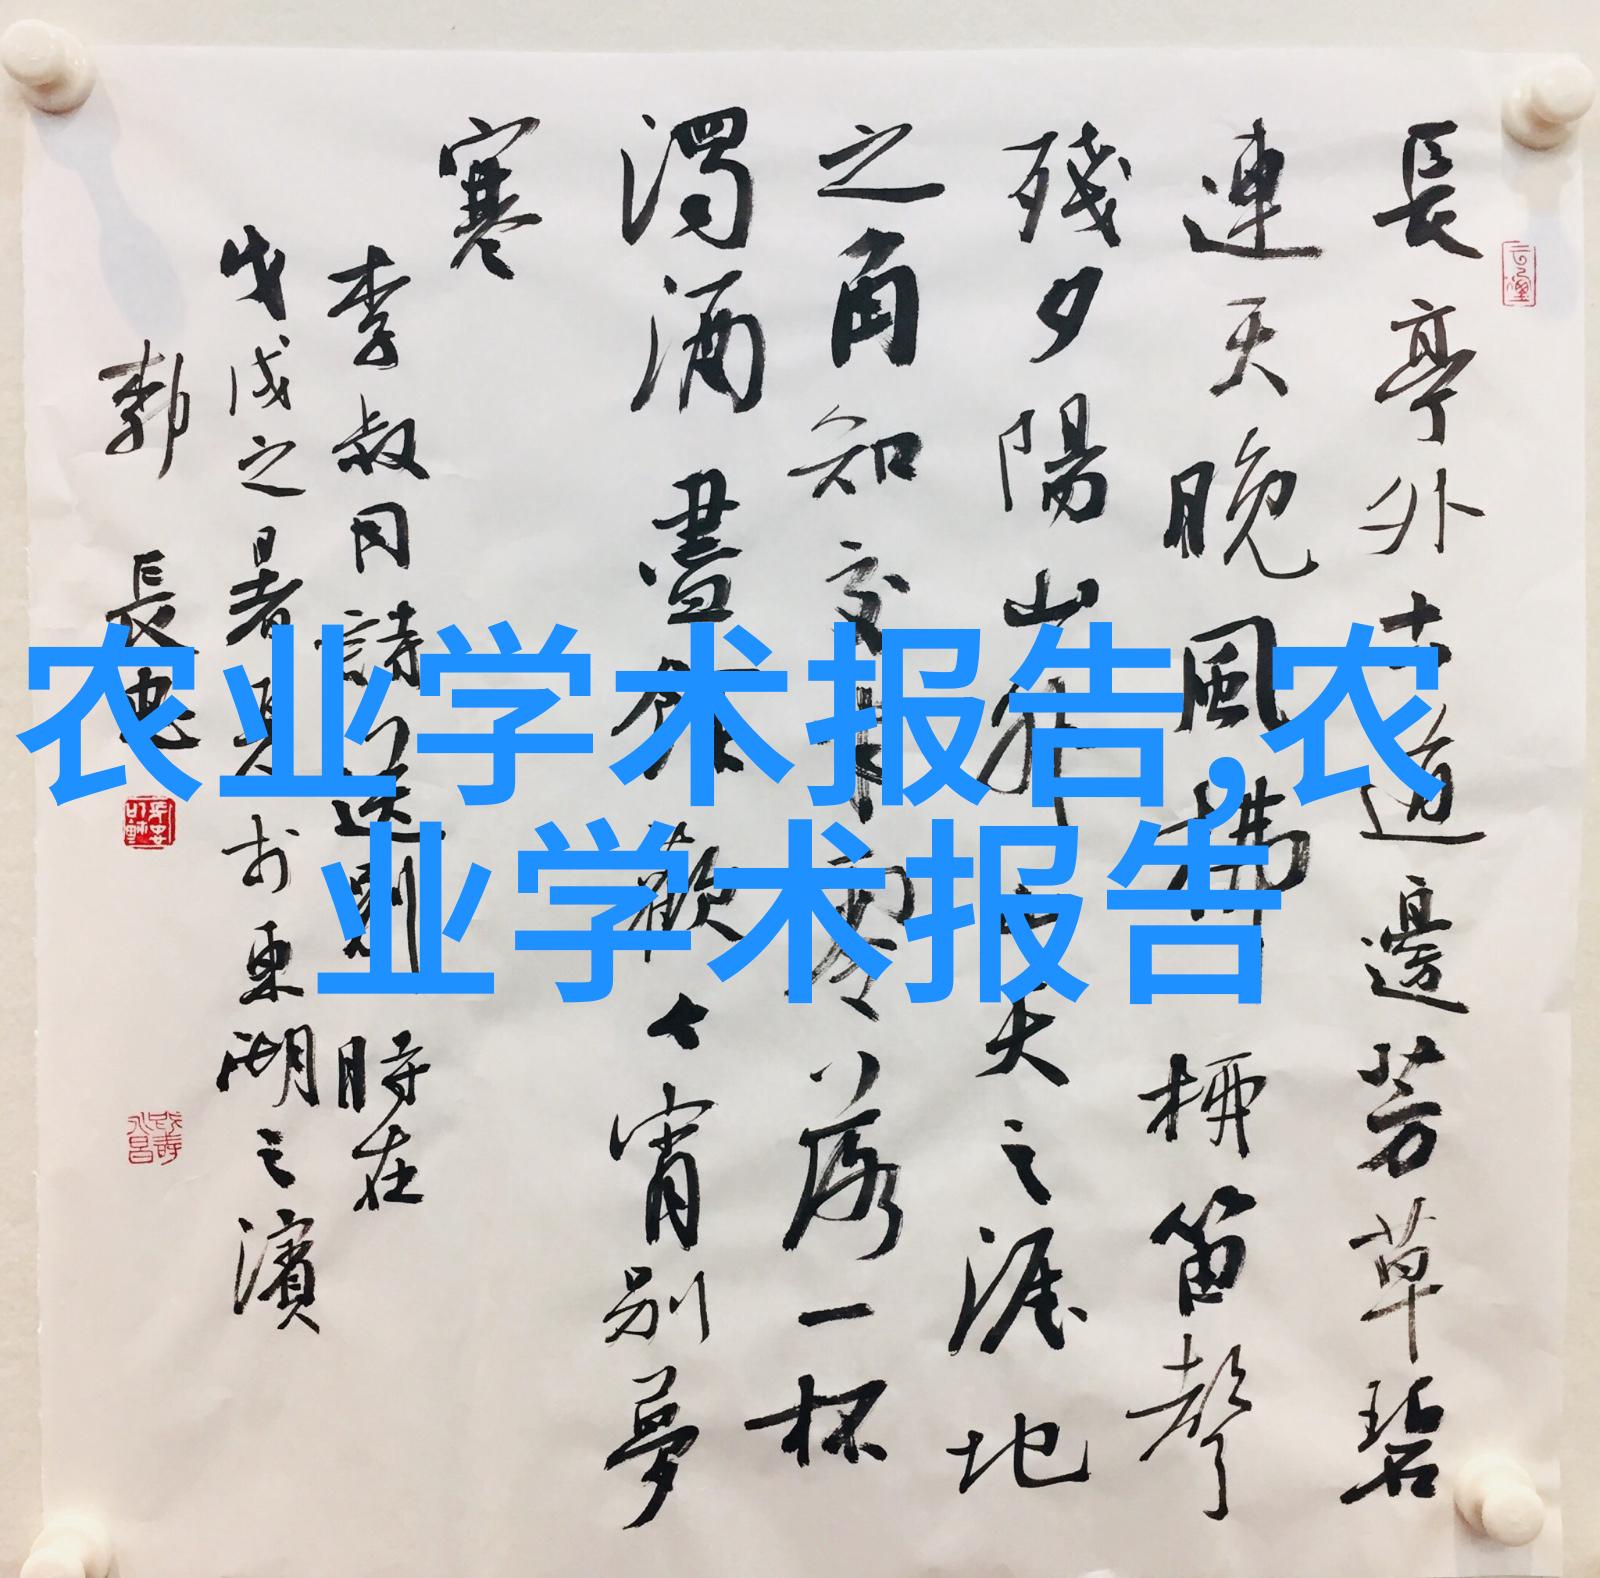 农业学术报告,农
业学术报告
長亭外古道邊芳草碧
連天晚風拂柳笛聲
殘夕陽山外山天之涯地
之角知交半零落一杯
濁酒盡餘歡今宵別夢
寒
李叔同詩送別時在
戊戌之暑夏於東湖之濱
長